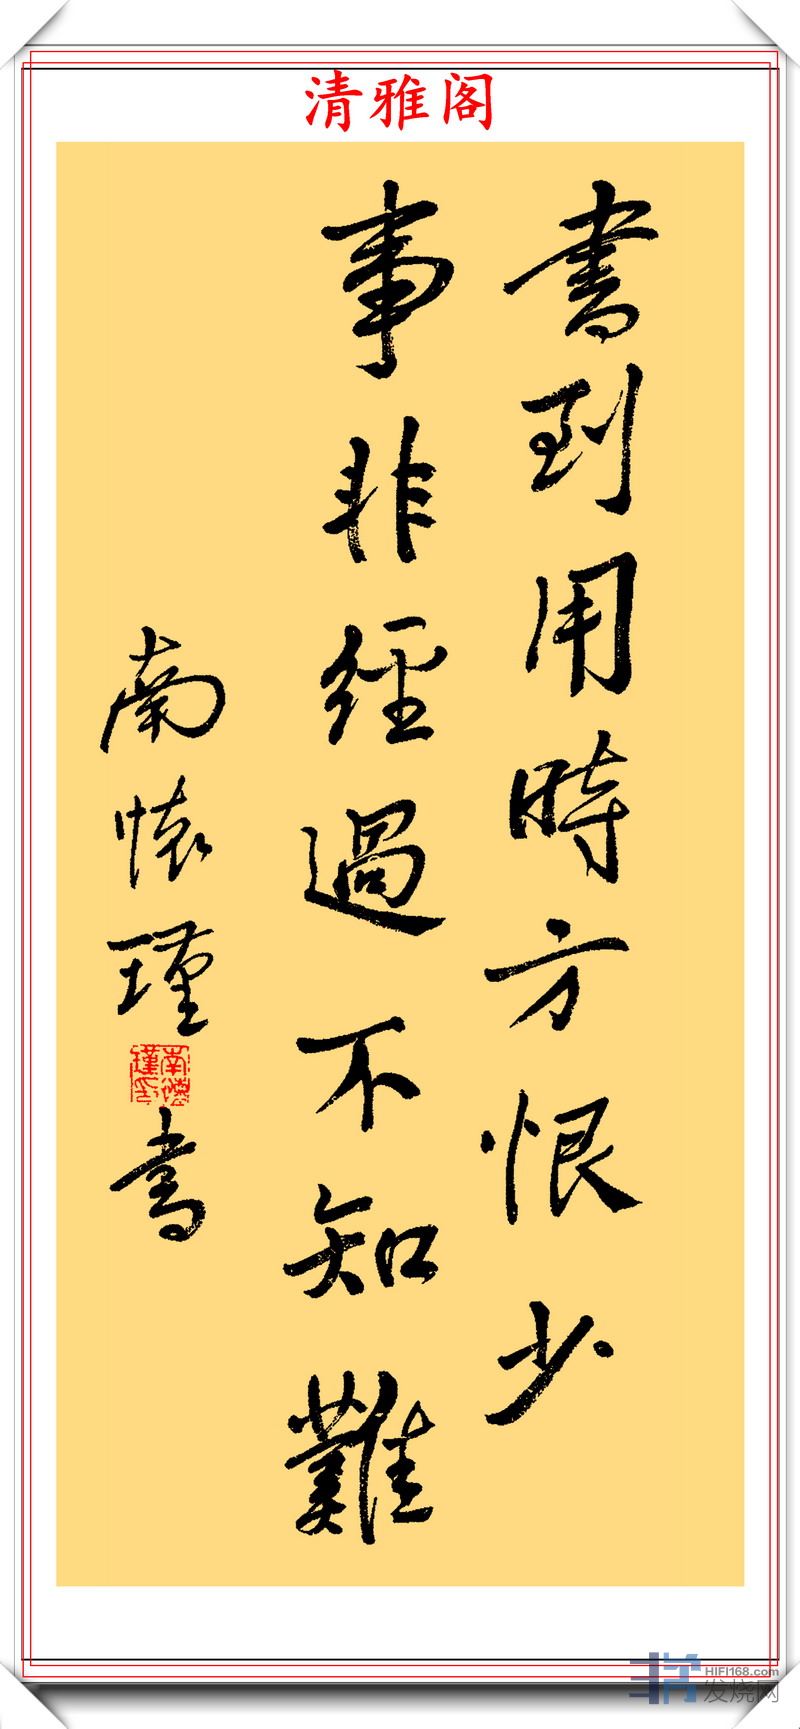 清雅阁
書到用時方恨少
事非經過不知難
南懷瑾書
南懷瑾印
HIFI168.com
发烧网